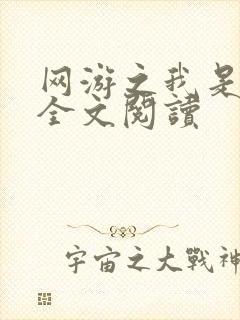 网游之我是
全文閱讀
宇宙之大戰神